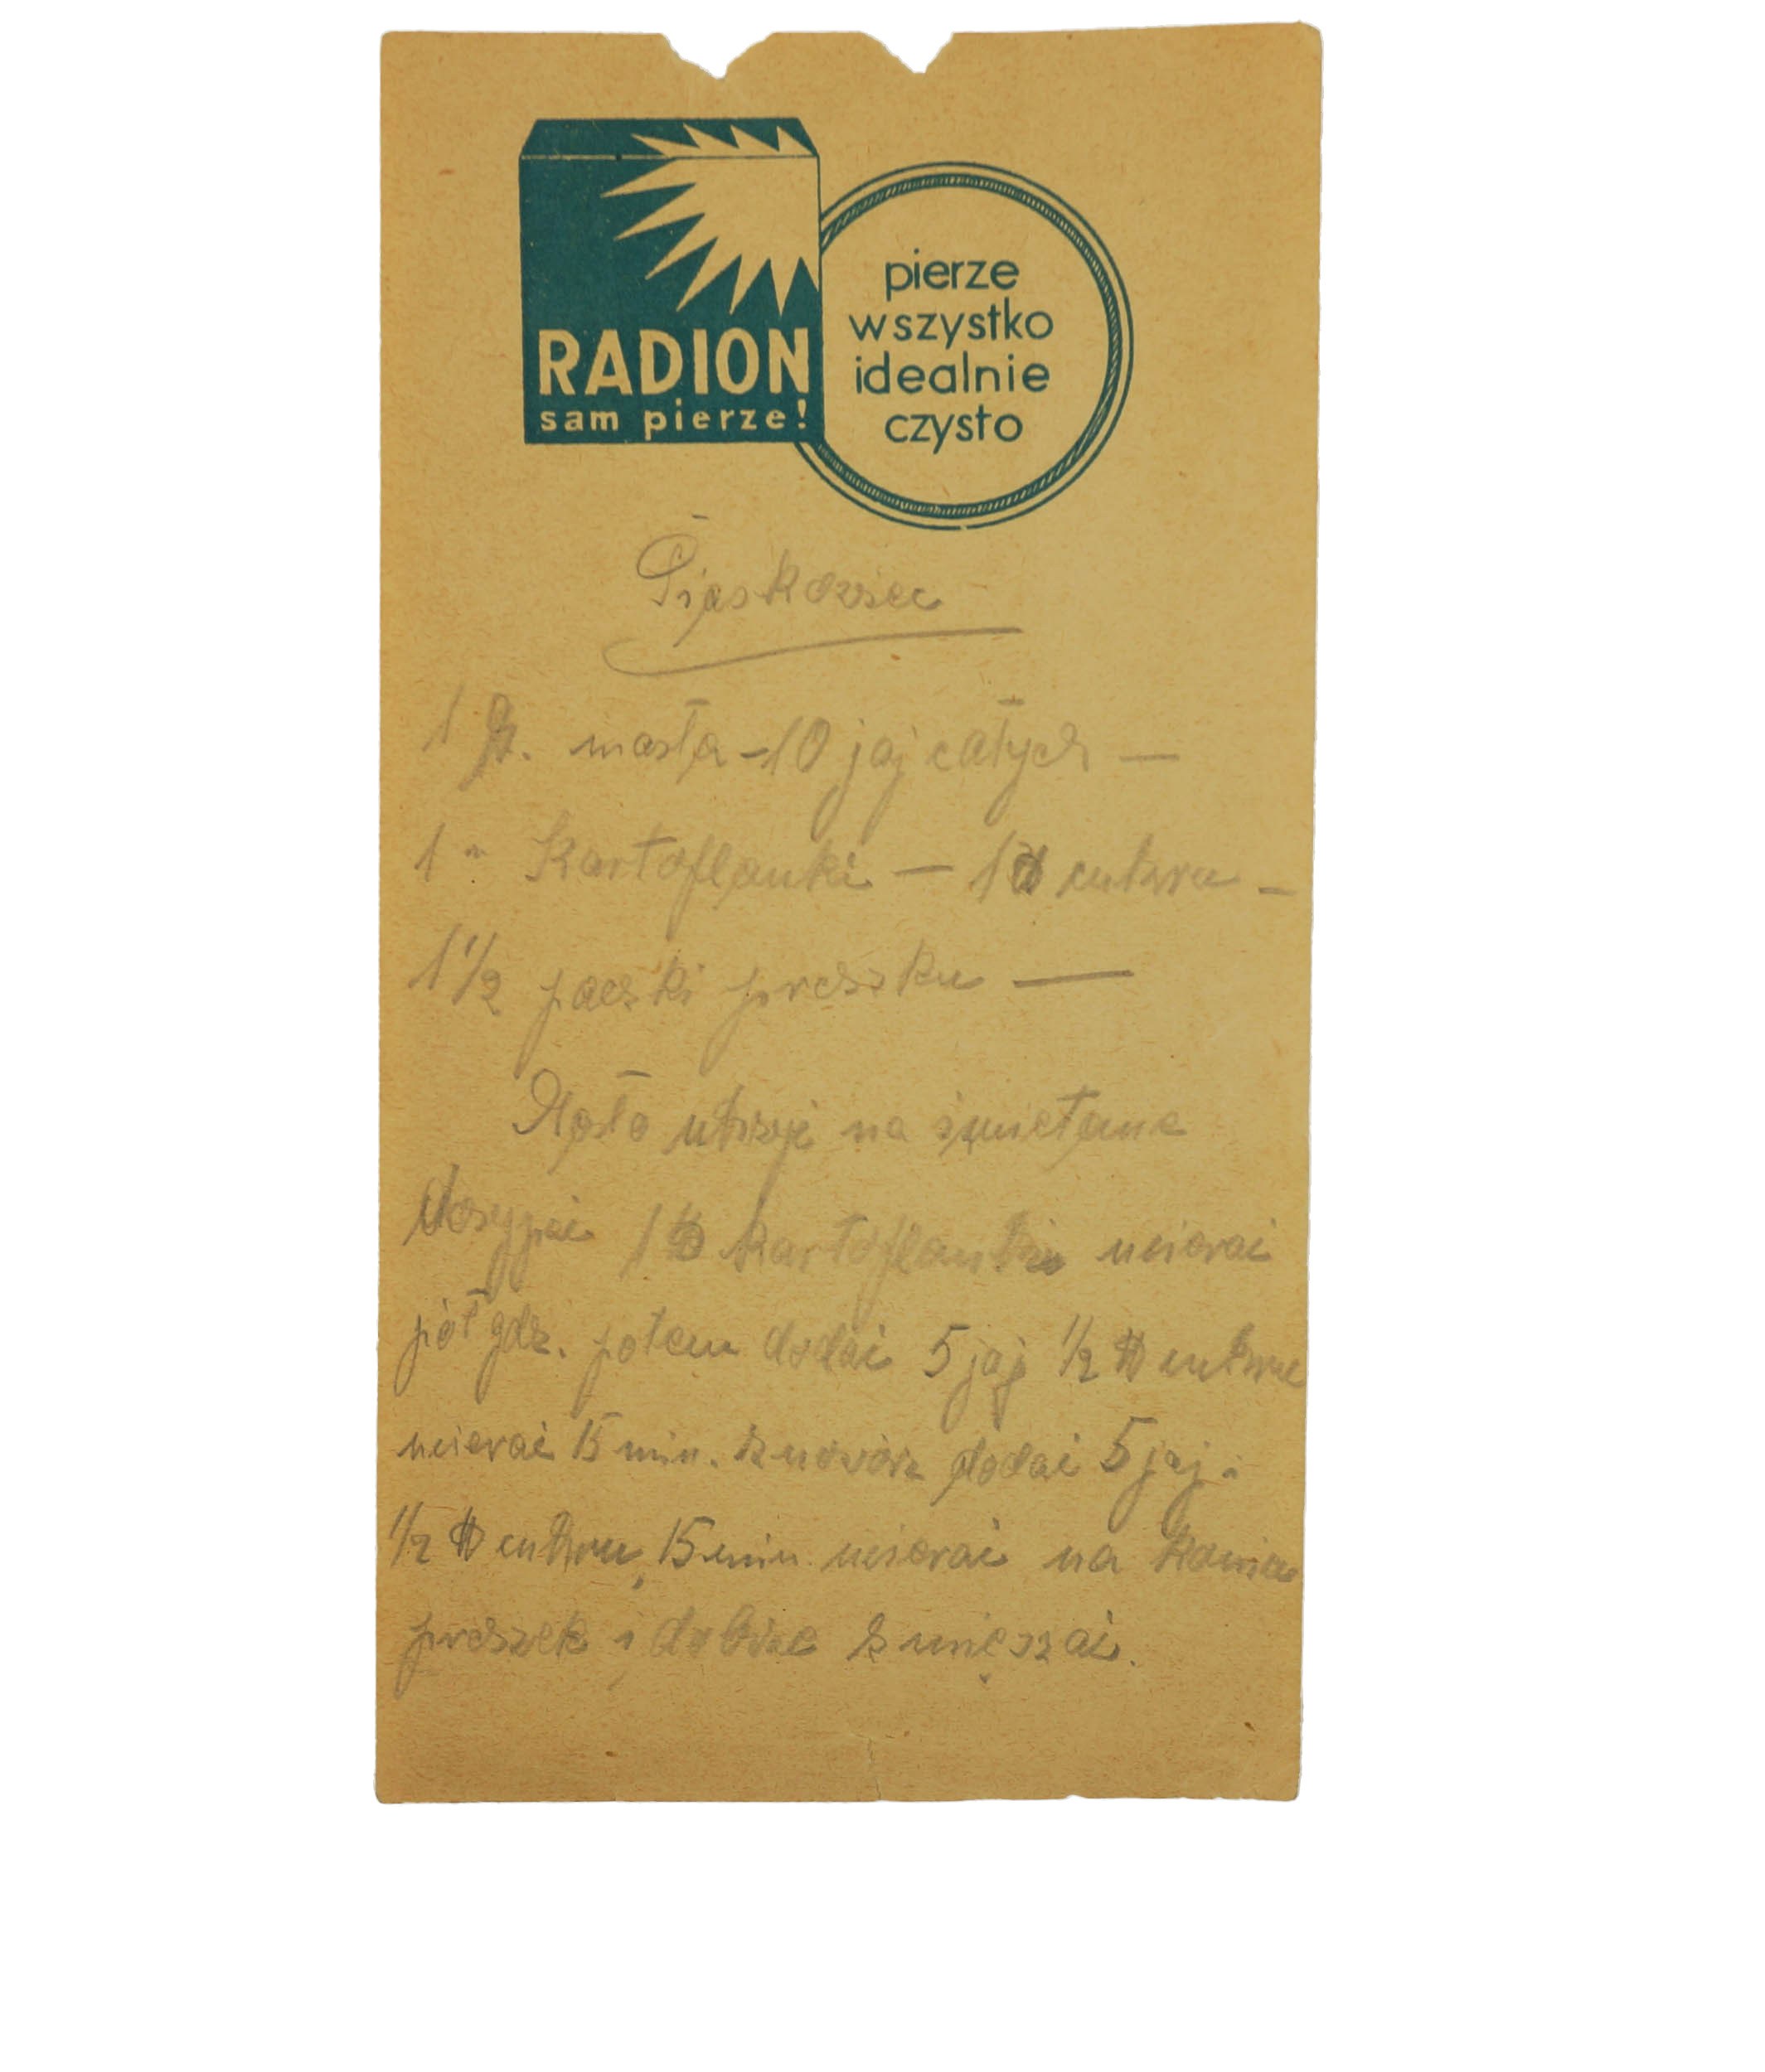 RADION
sam pierze!
pierze
wszystko
idealnie
czysto
Piaskowiec
1 ℔. masła - 10 jaj całych —
1 " kartoflanki — 1 ℔ cukru -
1 1/2 paczki proszku —
Masło utrzeć na śmietanę
dosypać 1 ℔ kartoflanki ucierać
pół gdz. potem dodać 5 jaj 1/2 ℔ cukru
ucierać 15 min. znowóz dodać 5 jaj i
1/2 ℔ cukru, 15 min. ucierać na koniec
proszek i dobrze zmięszać.